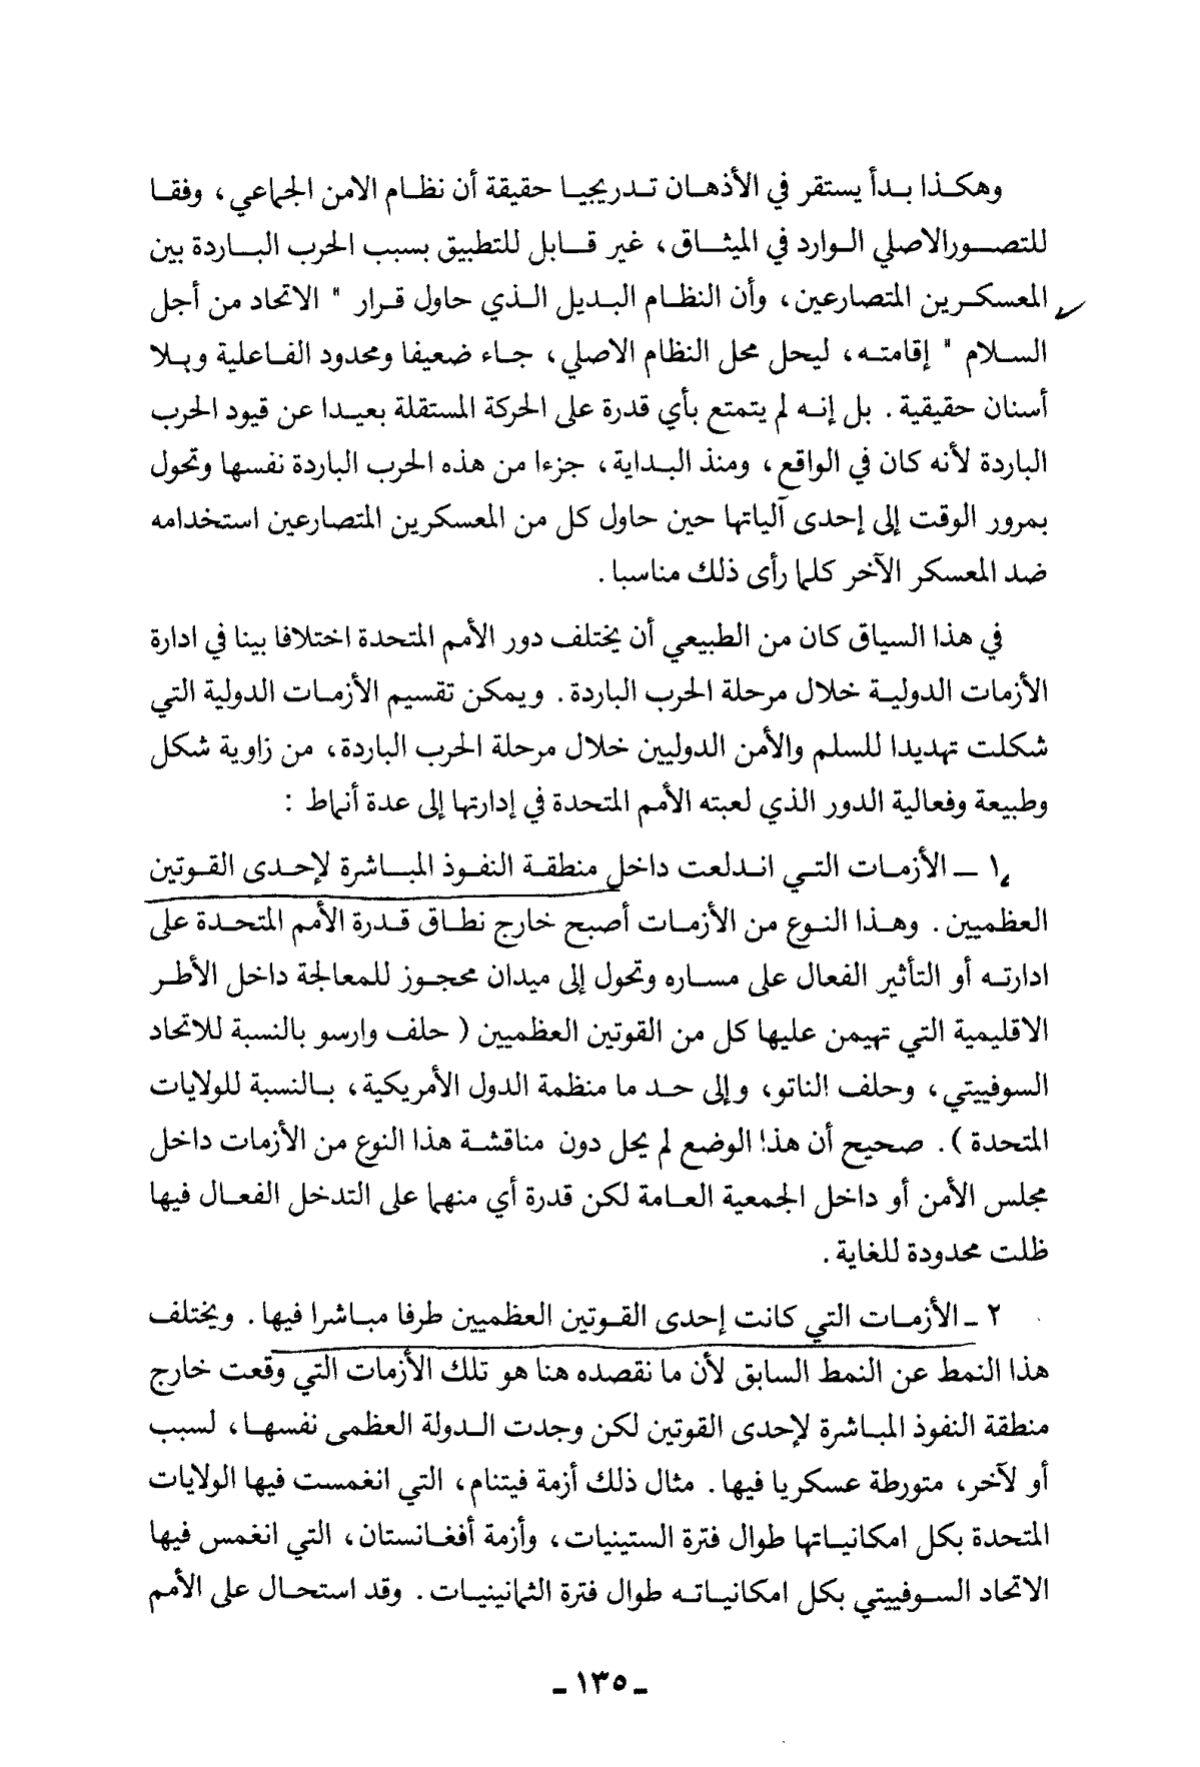 وهكذا بدأ يستقر في الأذهان تدريجيا حقيقة أن نظام الامن الجماعي، وفقا
للتصورالاصلي الوارد في الميثاق، غير قابل للتطبيق بسبب الحرب الباردة بين
المعسكرين المتصارعين، وأن النظام البديل الذي حاول قرار " الاتحاد من أجل
السلام " إقامته، ليحل محل النظام الاصلي، جاء ضعيفا ومحدود الفاعلية وبلا
أسنان حقيقية. بل إنه لم يتمتع بأي قدرة على الحركة المستقلة بعيدا عن قيود الحرب
الباردة لأنه كان في الواقع، ومنذ البداية، جزءا من هذه الحرب الباردة نفسها وتحول
بمرور الوقت إلى إحدى آلياتها حين حاول كل من المعسكرين المتصارعين استخدامه
ضد المعسكر الآخر كلما رأى ذلك مناسبا.
في هذا السياق كان من الطبيعي أن يختلف دور الأمم المتحدة اختلافا بينا في ادارة
الأزمات الدولية خلال مرحلة الحرب الباردة. ويمكن تقسيم الأزمات الدولية التي
شكلت تهديدا للسلم والأمن الدوليين خلال مرحلة الحرب الباردة، من زاوية شكل
وطبيعة وفعالية الدور الذي لعبته الأمم المتحدة في إدارتها إلى عدة أنماط :
١ - الأزمات التي اندلعت داخل منطقة النفوذ المباشرة لإحدى القوتين
العظميين. وهذا النوع من الأزمات أصبح خارج نطاق قدرة الأمم المتحدة على
ادارته أو التأثير الفعال على مساره وتحول إلى ميدان محجوز للمعالجة داخل الأطر
الاقليمية التي تهيمن عليها كل من القوتين العظميين ( حلف وارسو بالنسبة للاتحاد
السوفييتي، وحلف الناتو، وإلى حد ما منظمة الدول الأمريكية، بالنسبة للولايات
المتحدة ). صحيح أن هذا الوضع لم يحل دون مناقشة هذا النوع من الأزمات داخل
مجلس الأمن أو داخل الجمعية العامة لكن قدرة أي منهما على التدخل الفعال فيها
ظلت محدودة للغاية.
٢ - الأزمات التي كانت إحدى القوتين العظميين طرفا مباشرا فيها. ويختلف
هذا النمط عن النمط السابق لأن ما نقصده هنا هو تلك الأزمات التي وقعت خارج
منطقة النفوذ المباشرة لإحدى القوتين لكن وجدت الدولة العظمى نفسها، لسبب
أو لآخر، متورطة عسكريا فيها. مثال ذلك أزمة فيتنام، التي انغمست فيها الولايات
المتحدة بكل امكانياتها طوال فترة الستينيات، وأزمة أفغانستان، التي انغمس فيها
الاتحاد السوفييتي بكل امكانياته طوال فترة الثمانينيات. وقد استحال على الأمم
- ١٣٥ -